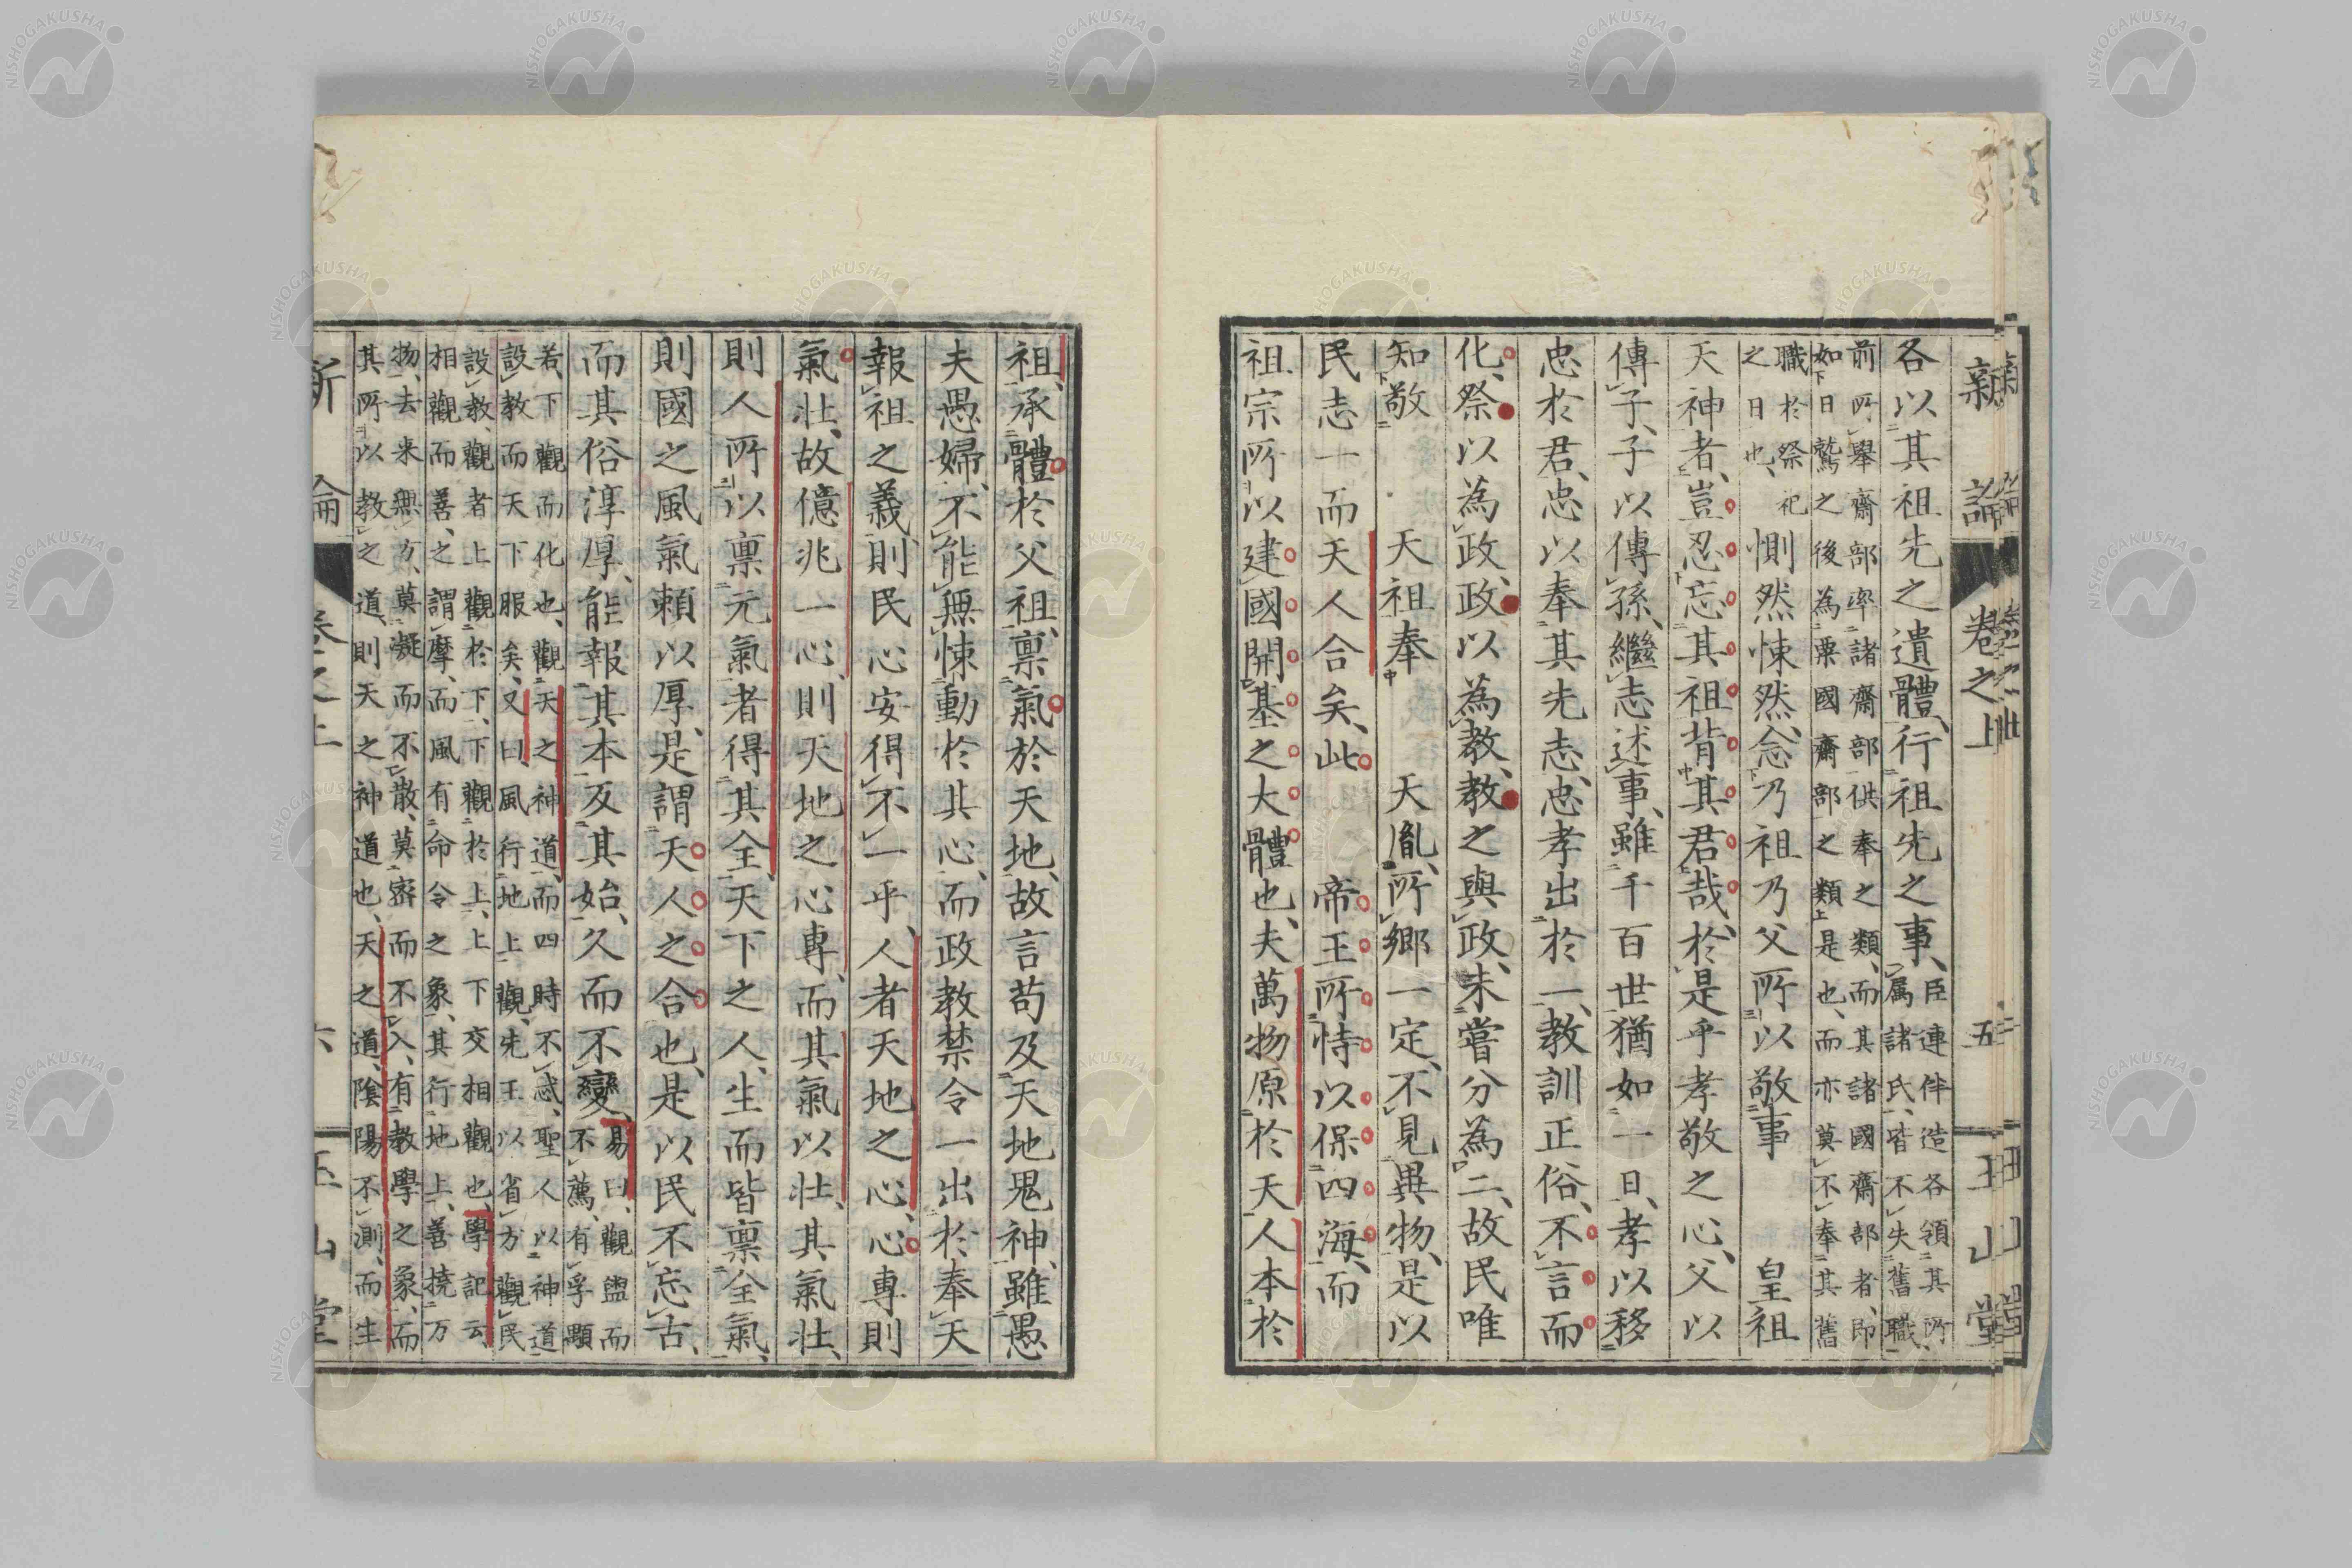 新論 卷之上 五 玉山堂
各以其祖先之遺體、行祖先之事、臣連伴造各領其所
属諸氏、皆不失舊職、
前所擧齋部率諸齋部供奉之類、而其諸國齋部者、即
如日鷲之後為粟國齋部之類是也、而亦莫不奉其舊
職於祭祀
之日也、惻然悚然、念乃祖乃父所以敬事 皇祖
天神者、豈忍忘其祖背其君哉、於是乎孝敬之心、父以
傳子、子以傳孫、繼志述事、雖千百世猶如一日、孝以移
忠於君、忠以奉其先志、忠孝出於一、教訓正俗、不言而
化、祭以為政、政以為教、教之與政、未嘗分為二、故民唯
知敬 天祖奉 天胤、所郷一定、不見異物、是以
民志一而天人合矣、此 帝王所恃以保四海、而
祖宗所以建國開基之大體也、夫萬物原於天、人本於
祖、承體於父祖、禀氣於天地、故言苟及天地鬼神、雖愚
夫愚婦、不能無悚動於其心、而政教禁令一出於奉天
報祖之義、則民心安得不一乎、人者天地之心、心專則
氣壮、故億兆一心、則天地之心專、而其氣以壮、其氣壮、
則人所以禀元氣者得其全、天下之人、生而皆禀全氣、
則國之風氣頼以厚、是謂天人之合也、是以民不忘古、
而其俗淳厚、能報其本反其始、久而不變、易曰、觀盥而
不薦、有孚顒
若、下觀而化也、觀天之神道、而四時不忒、聖人以神道
設教而天下服矣、又曰、風行地上觀、先王以省方觀民
設教、觀者上觀於下、下觀於上、上下交相觀也、學記云、
相觀而善、之謂摩、而風有命令之象、其行地上、善撓万
物、去来無方、莫凝而不散、莫密而不入、有教學之象、而
其所以教之道、則天之神道也、天之道、陰陽不測、而生
新論 卷之上 六 玉山堂
NISHOGAKUSHA